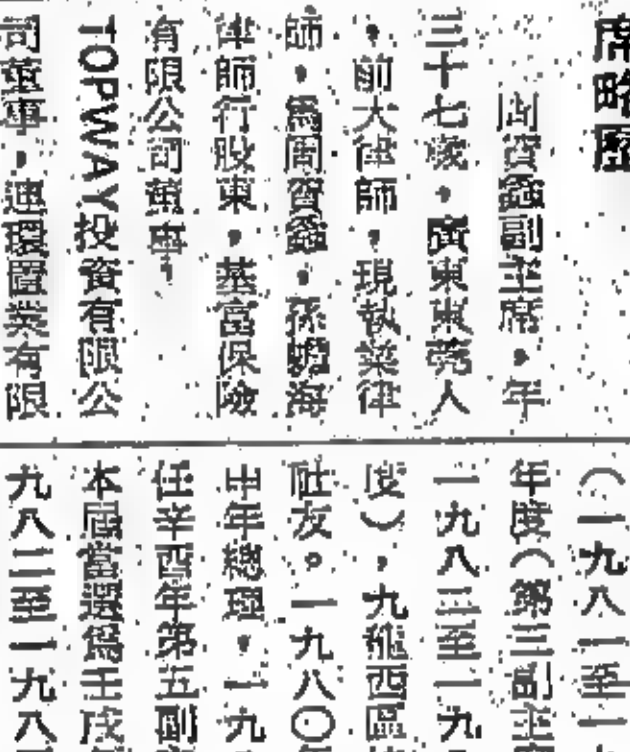 席略歷
周賢鑫副主席，年
三十七歲，廣東東莞人
，前大律師，現執業律
師，為周賢鑫，孫 海
律師行股東，基富保險
有限公司董事，
TOPWAY投資有限公
司董事，連環置業有限
（一九八一至一
年度（第三副主
一九八三至一九
度），九龍西區
社友。一九八〇年
中年總理，一九
任辛酉年第五副
本屆當選為壬戌
九八二至一九八